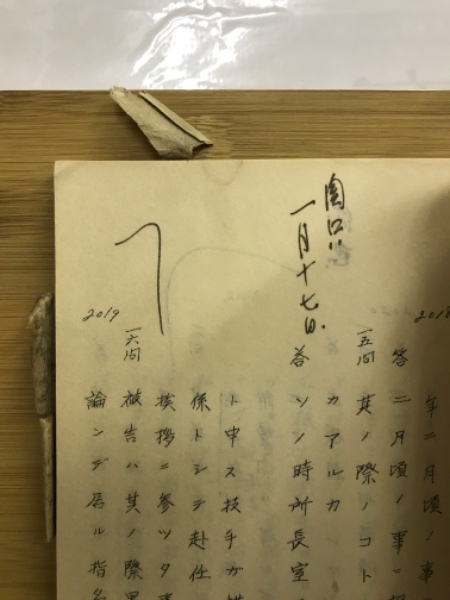 2018
年二月頃ノ事
答 二月頃ノ事ニ
一五問 其ノ際ノコト
カアルカ
関口ハ
一月十七日.
答 ソノ時所長室
ト申ス技手ガ
係トシテ赴任
挨拶ニ参ツタ
一六問 被告ハ其ノ際
2019
ンデ居ル指